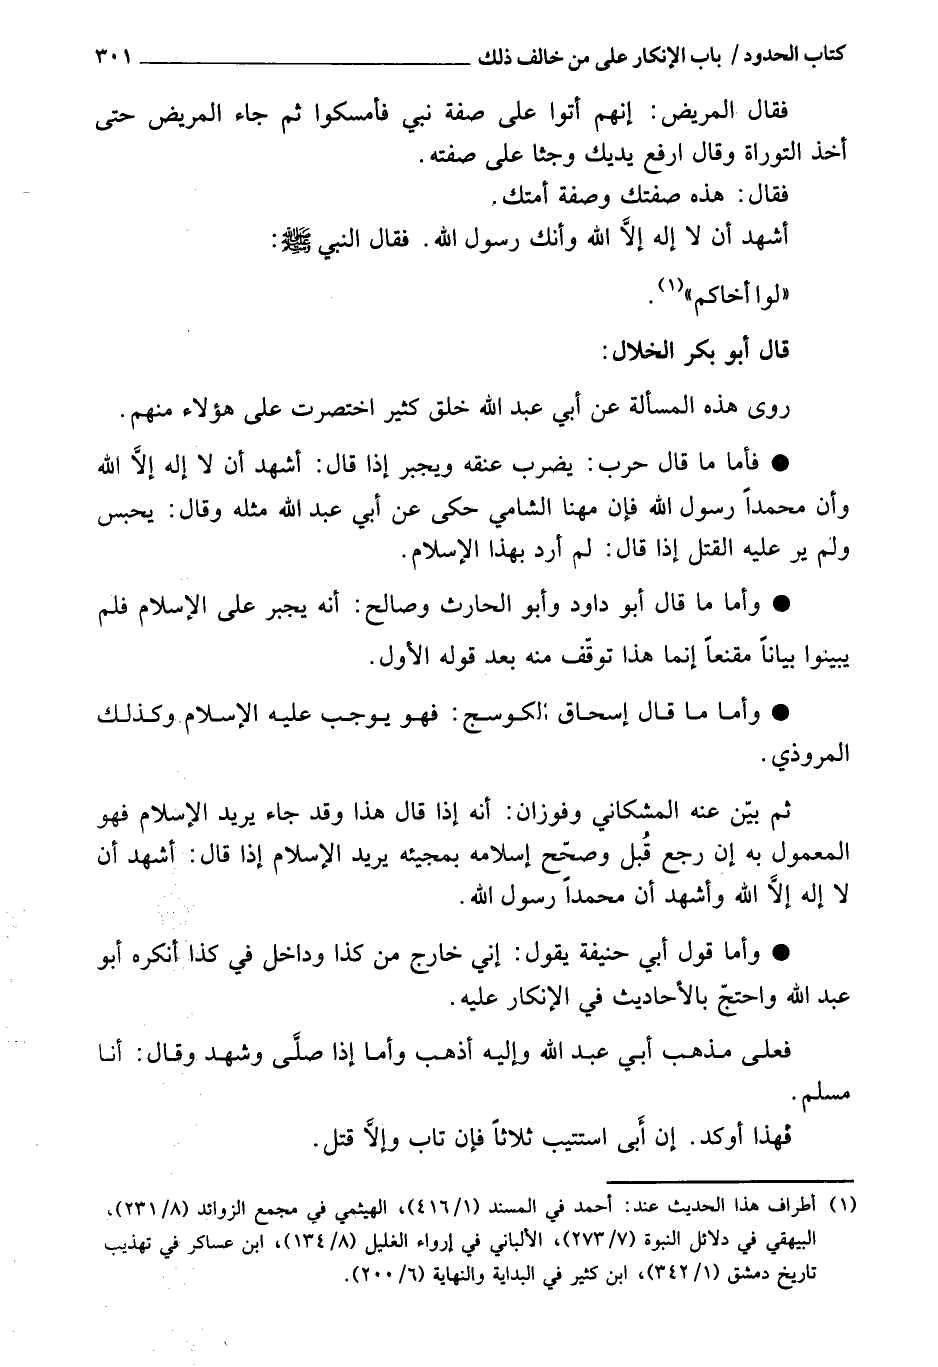 كتاب الحدود / باب الإنكار على من خالف ذلك ٣٠١
فقال المريض: إنهم أتوا على صفة نبي فأمسكوا ثم جاء المريض حتى
أخذ التوراة وقال ارفع يديك وجثا على صفته.
فقال: هذه صفتك وصفة أمتك.
أشهد أن لا إله إلاَّ الله وأنك رسول الله. فقال النبي ﷺ:
«لوا أخاكم»(١).
قال أبو بكر الخلال:
روى هذه المسألة عن أبي عبد الله خلق كثير اختصرت على هؤلاء منهم.
● فأما ما قال حرب: يضرب عنقه ويجبر إذا قال: أشهد أن لا إله إلاَّ الله
وأن محمداً رسول الله فإن مهنا الشامي حكى عن أبي عبد الله مثله وقال: يحبس
ولم ير عليه القتل إذا قال: لم أرد بهذا الإسلام.
● وأما ما قال أبو داود وأبو الحارث وصالح: أنه يجبر على الإسلام فلم
يبينوا بياناً مقنعاً إنما هذا توقّف منه بعد قوله الأول.
● وأما ما قال إسحاق الكوسج: فهو يوجب عليه الإسلام وكذلك
المروذي.
ثم بيّن عنه المشكاني وفوزان: أنه إذا قال هذا وقد جاء يريد الإسلام فهو
المعمول به إن رجع قُبل وصحّح إسلامه بمجيئه يريد الإسلام إذا قال: أشهد أن
لا إله إلاَّ الله وأشهد أن محمداً رسول الله.
● وأما قول أبي حنيفة يقول: إني خارج من كذا وداخل في كذا أنكره أبو
عبد الله واحتجّ بالأحاديث في الإنكار عليه.
فعلى مذهب أبي عبد الله وإليه أذهب وأما إذا صلَّى وشهد وقال: أنا
مسلم.
فهذا أوكد. إن أَبى استتيب ثلاثاً فإن تاب وإلاَّ قتل.
(١) أطراف هذا الحديث عند: أحمد في المسند (٤١٦/١)، الهيثمي في مجمع الزوائد (٢٣١/٨)،
البيهقي في دلائل النبوة (٢٧٣/٧)، الألباني في إرواء الغليل (١٣٤/٨)، ابن عساكر في تهذيب
تاريخ دمشق (٣٤٢/١)، ابن كثير في البداية والنهاية (٢٠٠/٦).